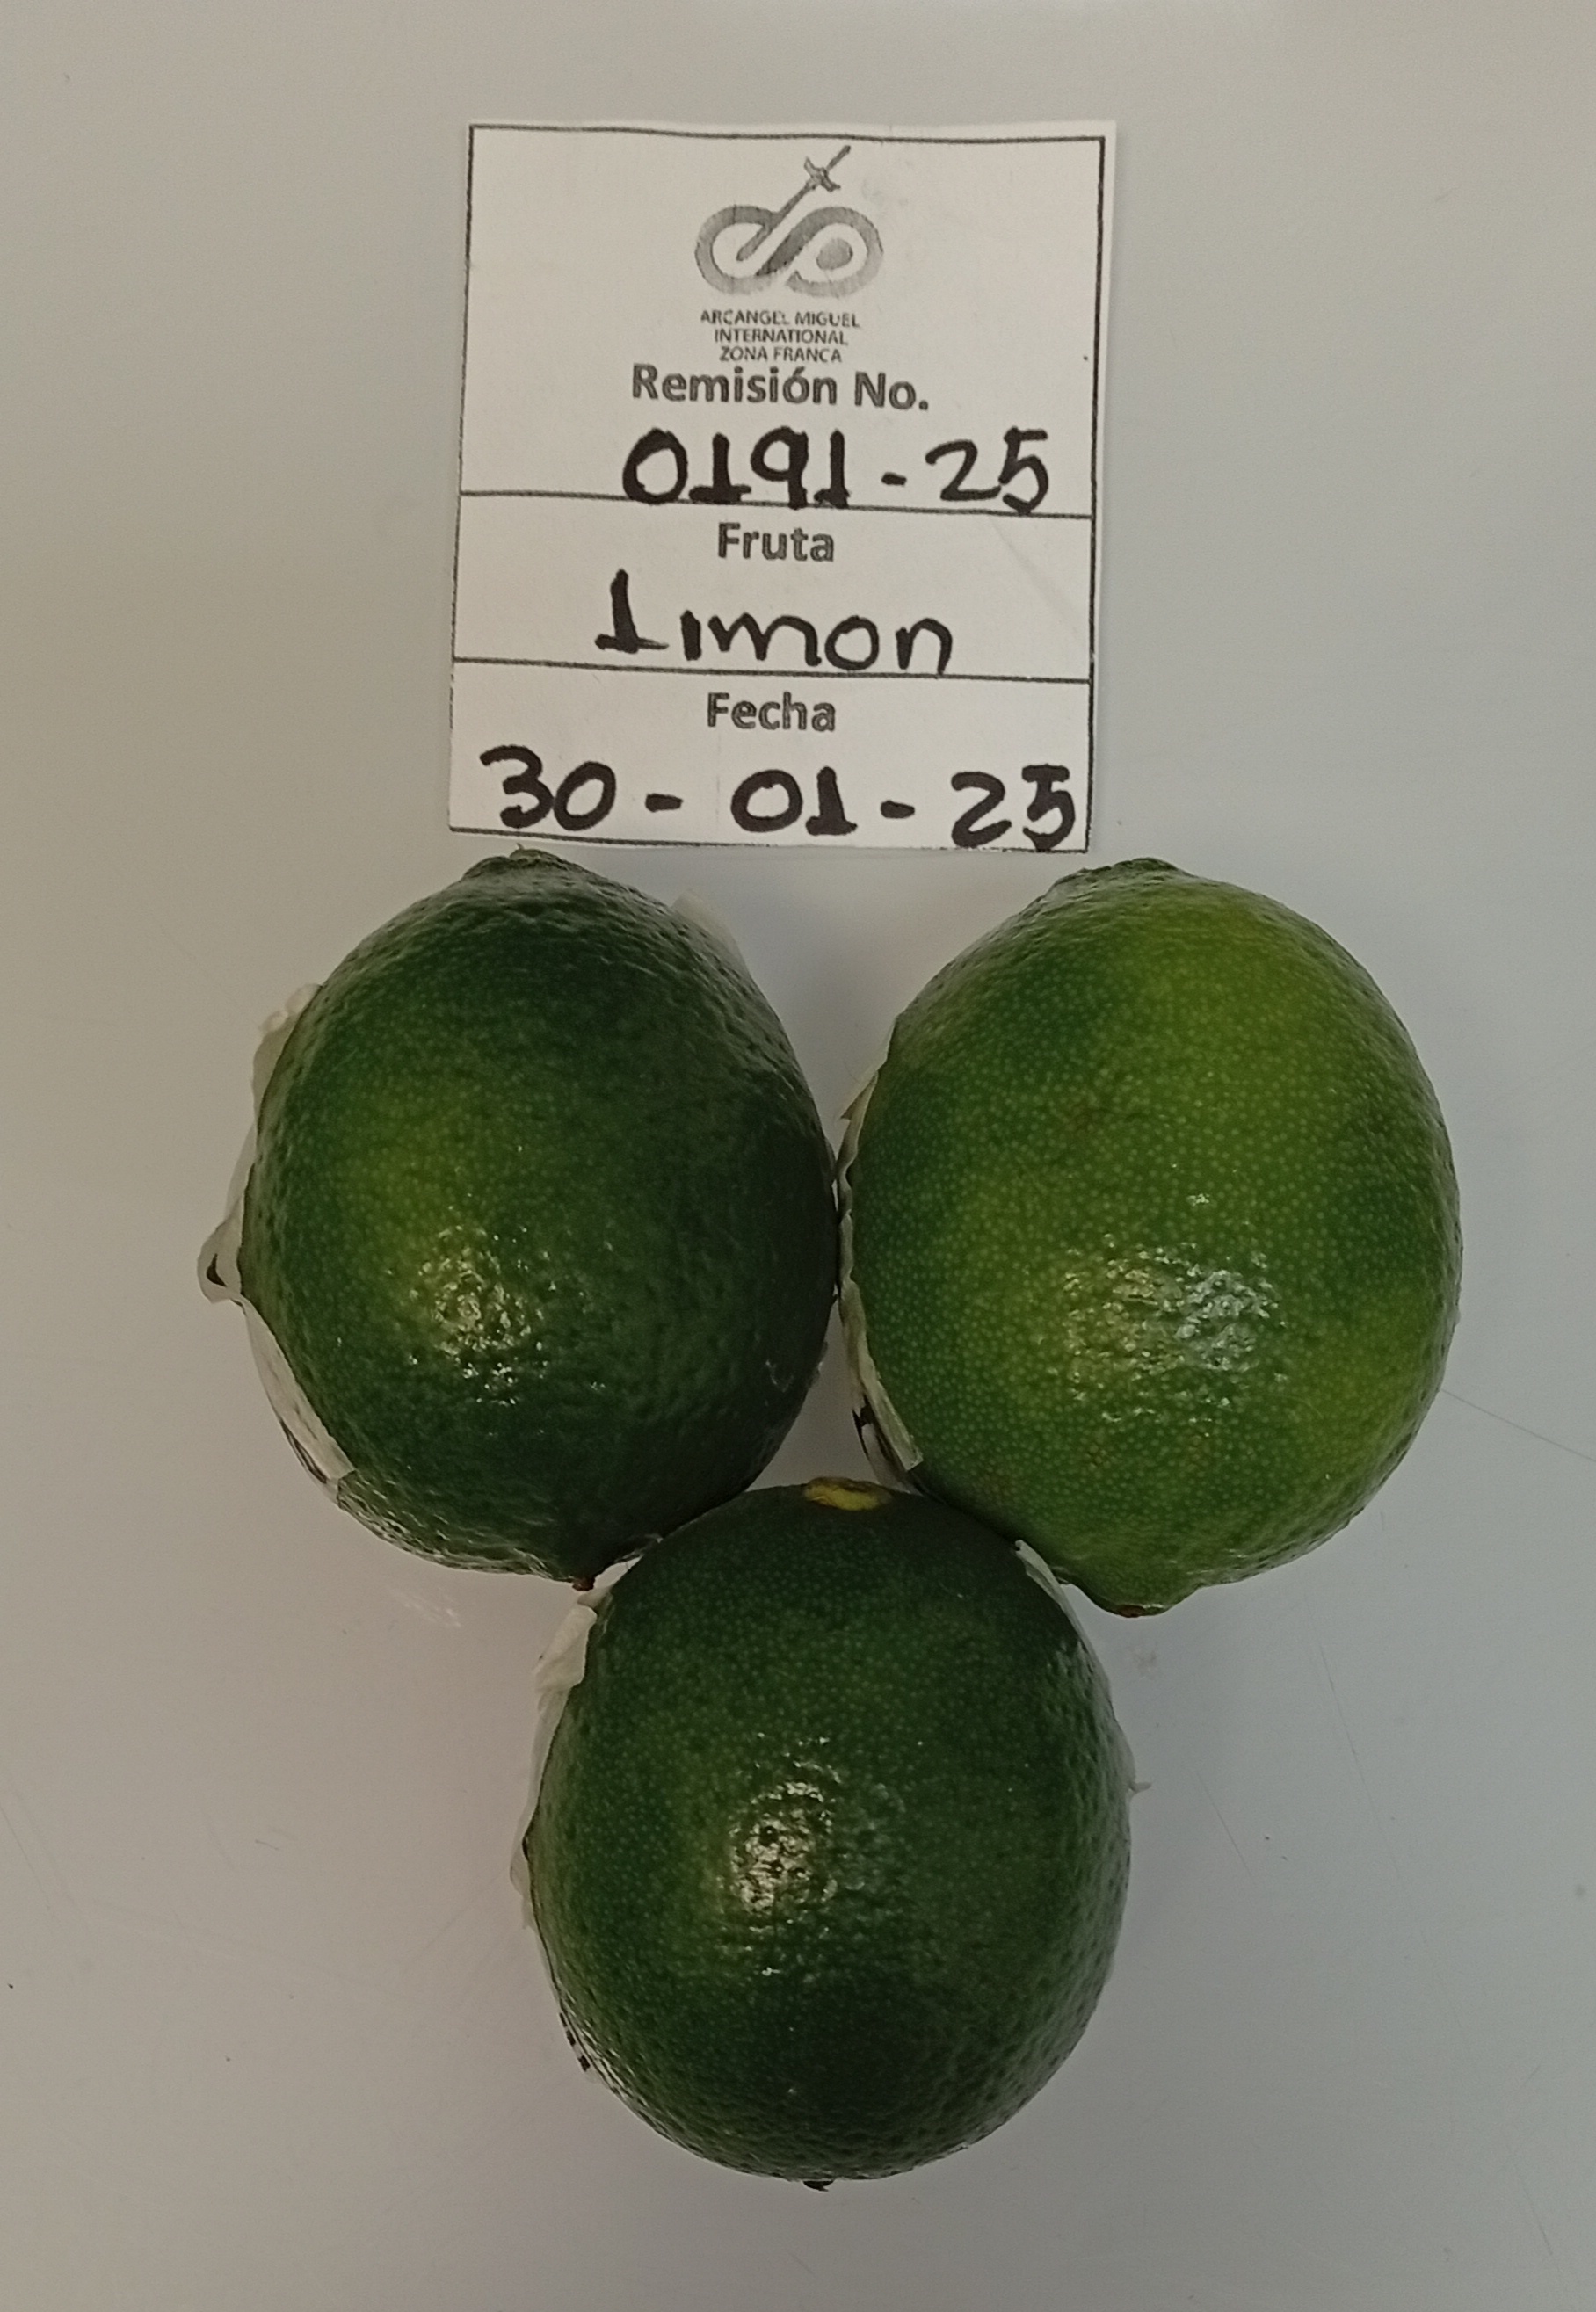 ARCANGEL MIGUEL
INTERNATIONAL
ZONA FRANCA
Remisión No.
0191-25
Fruta
Limon
Fecha
30-01-25